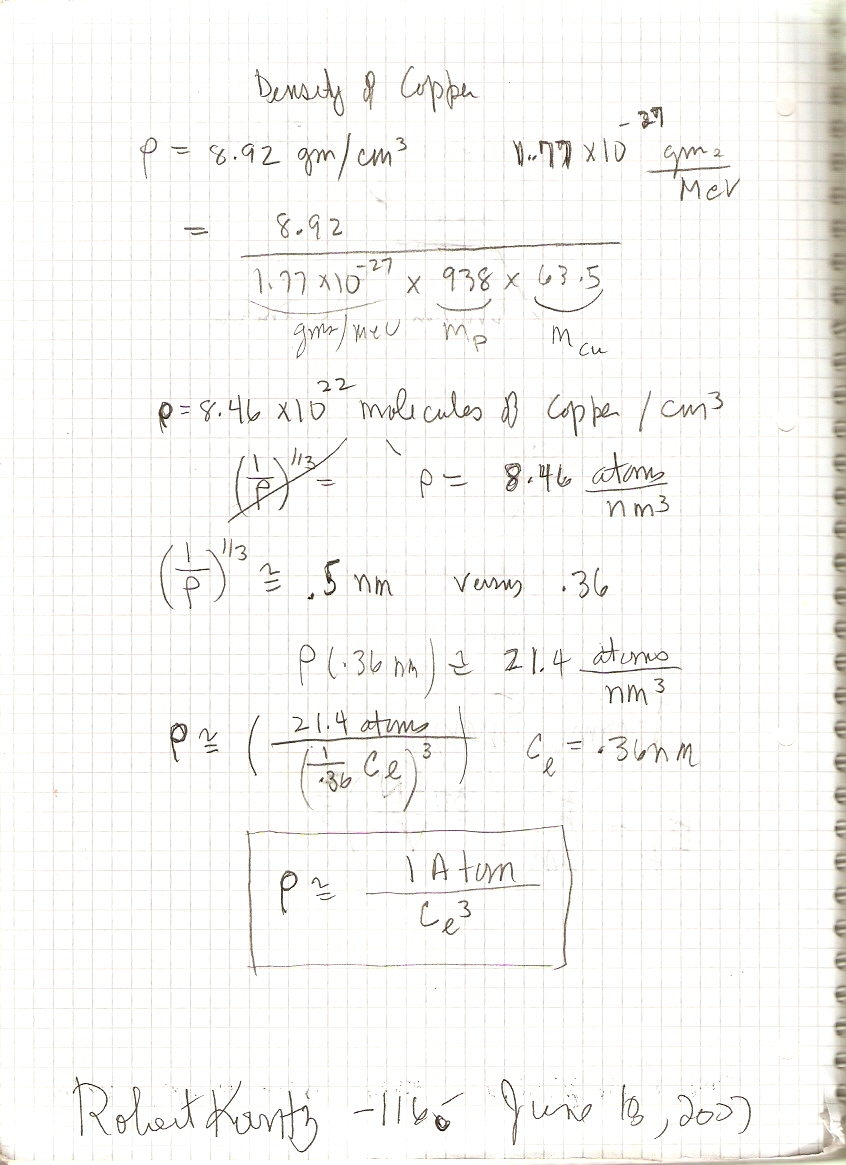 Density of Copper
ρ = 8.92 gm/cm³ 1.77 x10⁻²⁷ gms/MeV
= 8.92 / (1.77 x10⁻²⁷ x 938 x 63.5)
gms/MeV m_p m_cu
ρ = 8.46 x10²² molecules of Copper / cm³
(1/ρ)^1/3 = ρ = 8.46 atoms/nm³
(1/ρ)^1/3 ≅ .5 nm versus .36
ρ(.36 nm) ≅ 21.4 atoms/nm³
ρ ≅ (21.4 atoms / (1/.36 C_e)³) C_e = .36nm
ρ ≅ 1 Atom / C_e³
Robert Kantz -1166 June 18, 2007